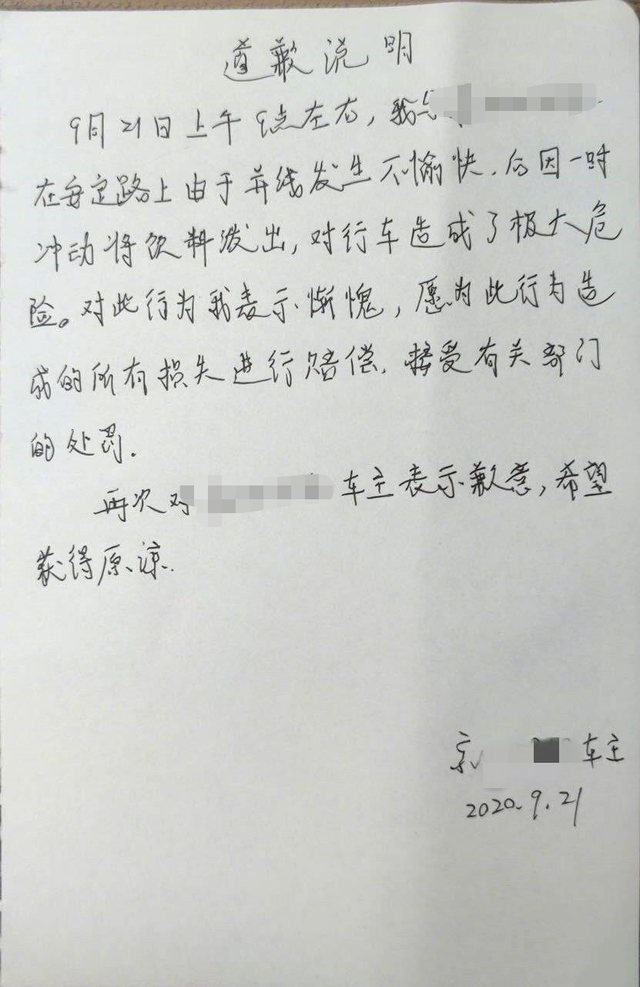 道歉说明
9月21日上午9点左右，我与
在安定路上由于并线发生不愉快，后因一时
冲动将饮料泼出，对行车造成了极大危
险。对此行为我表示惭愧，愿为此行为造
成的所有损失进行赔偿，接受有关部门
的处罚．
再次对 车主表示歉意，希望
获得原谅．
京 车主
2020.9.21